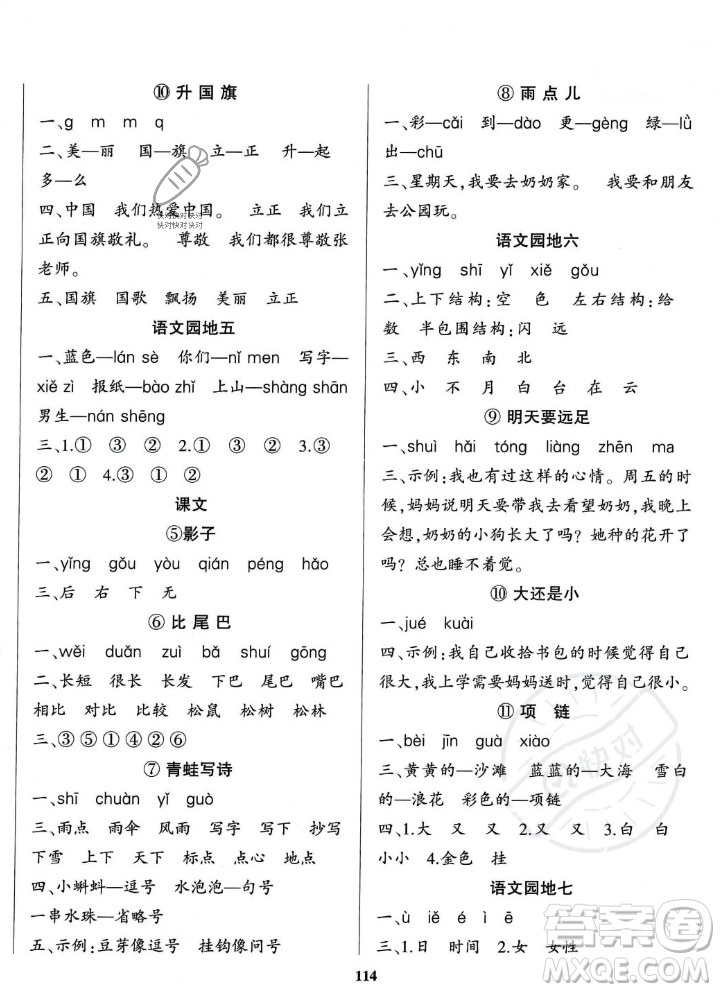 ⑩ 升 国 旗
一、g m m q
二、美—丽 国—旗 立—正 升—起
多—么
四、中国 我们热爱中国。 立正 我们立
正向国旗敬礼。 尊敬 我们都很尊敬张
老师。
五、国旗 国歌 飘扬 美丽 立正
语文园地五
一、蓝色—lán sè 你们—nǐ men 写字—
xiě zì 报纸—bào zhǐ 上山—shàng shān
男生—nán shēng
三、1.① ③ ② 2.② ① ③ 3.③
② ① 4.③ ② ①
课文
⑤影子
一、yǐng gǒu yòu qián péng hǎo
三、后 右 下 无
⑥ 比 尾 巴
一、wěi duǎn zuì bǎ shuí gōng
二、长短 很长 长发 下巴 尾巴 嘴巴
相比 对比 比较 松鼠 松树 松林
三、③⑤①④②⑥
⑦ 青蛙写诗
一、shī chuàn yǐ guò
三、雨点 雨伞 风雨 写字 写下 抄写
下雪 上下 天下 标点 点心 地点
四、小蝌蚪—逗号 水泡泡—句号
一串水珠—省略号
五、示例:豆芽像逗号 挂钩像问号
⑧ 雨 点 儿
一、彩—cǎi 到—dào 更—gèng 绿—lǜ
出—chū
三、星期天,我要去奶奶家。 我要和朋友
去公园玩。
语文园地六
一、yǐng shī yǐ xiě gǒu
二、上下结构:空 色 左右结构:给
数 半包围结构:闪 远
三、西 东 南 北
四、小 不 月 白 台 在 云
⑨ 明天要远足
一、shuì hǎi tóng liàng zhēn ma
三、示例:我也有过这样的心情。周五的时
候,妈妈说明天要带我去看望奶奶,我晚上
会想,奶奶的小狗长大了吗? 她种的花开了
吗? 总也睡不着觉。
⑩ 大还是小
一、jué kuài
四、示例:我自己收拾书包的时候觉得自己
很大,我上学需要妈妈送时觉得自己很小。
⑪ 项 链
一、bèi jīn guà xiào
三、黄黄的—沙滩 蓝蓝的—大海 雪白
的—浪花 彩色的—项链
四、1.大 又 又 2.大 大 3.白
小小 4.金色 挂
语文园地七
一、ù iě é ì ē
三、1.日 时间 2.女 女性
114
快对快对快对
快对快对快对
快对
答案圈
MXQE.COM